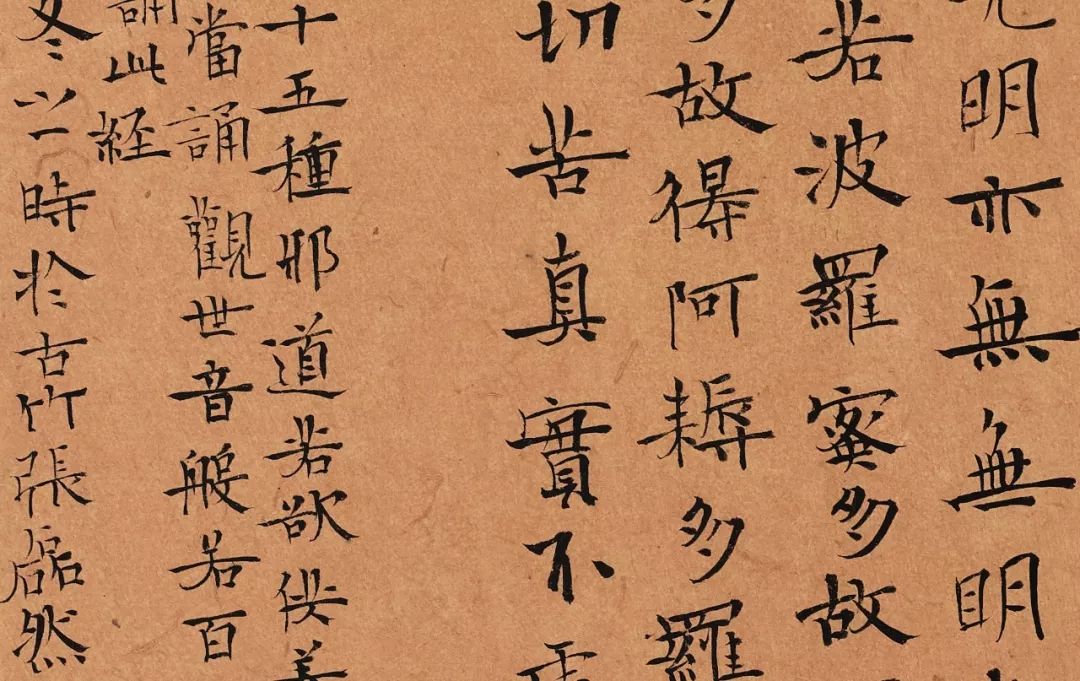 明亦無無明
若波羅蜜多故
多故得阿耨多羅
切苦真實不虛
十五種邪道若欲供養
當誦觀世音般若百
誦此経
冬時於古竹張磊然